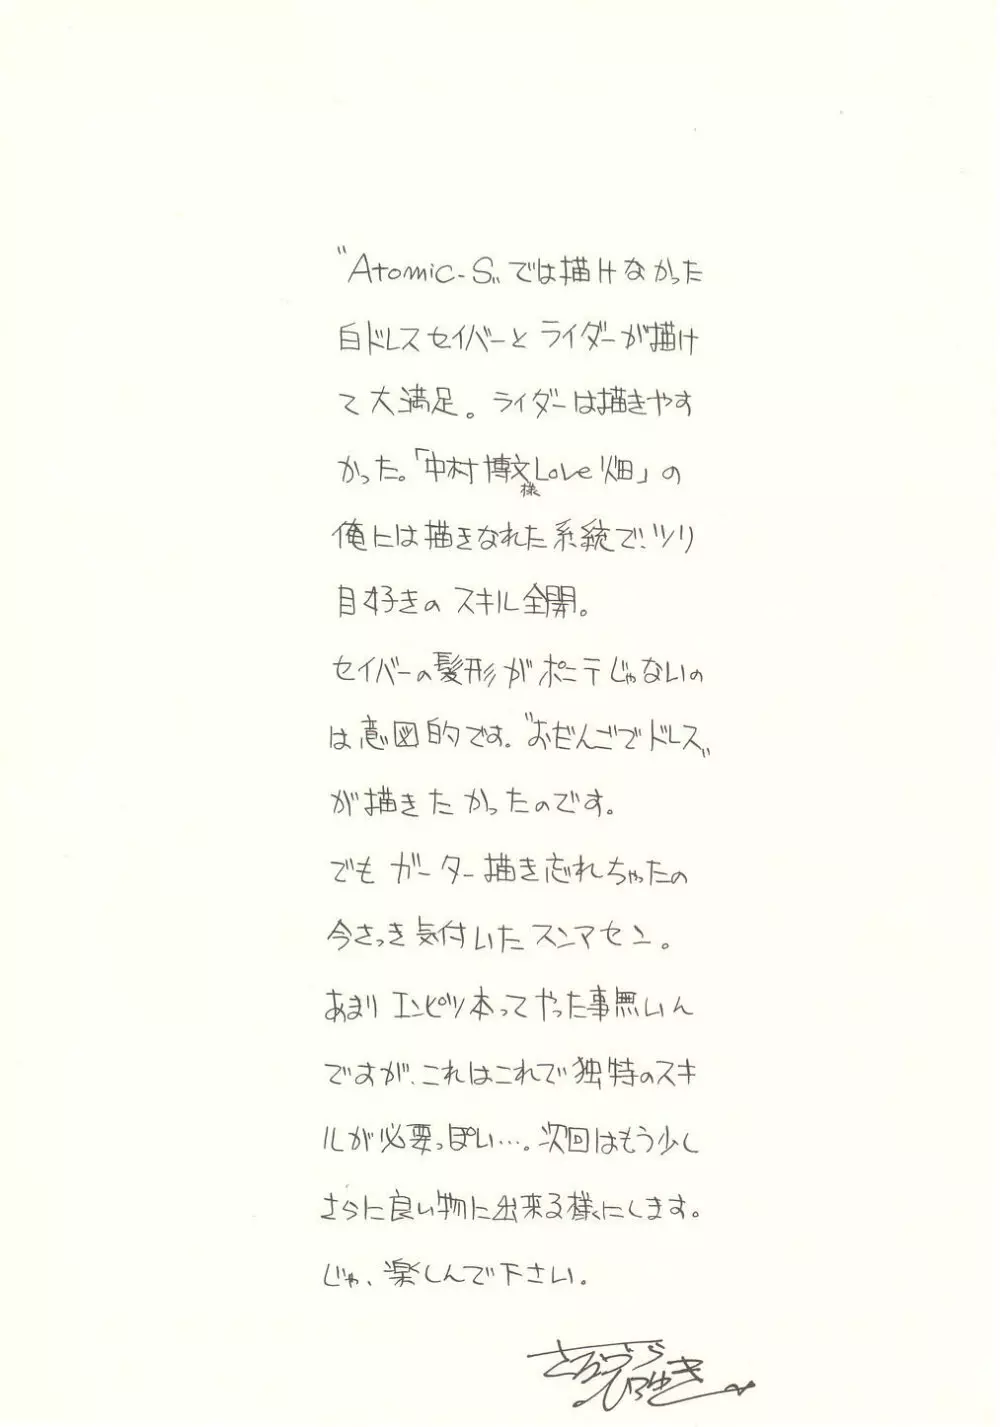 “Atomic-S”では描けなかった
白ドレスセイバーとライダーが描け
て大満足。ライダーは描きやす
かった。「中村博文様Love畑」の
俺には描きなれた系統で!ツリ
目好きのスキル全開。
セイバーの髪形がポニテじゃないの
は意図的です。“おだんごでドレス”
が描きたかったのです。
でもガーター描き忘れちゃたの
今さっき気付いたスンマセン。
あまりエンピツ本ってやった事無いん
ですが、これはこれで独特のスキ
ルが必要っぽい…。次回はもう少し
さらに良い物に出来る様にします。
じゃ、楽しんで下さい。